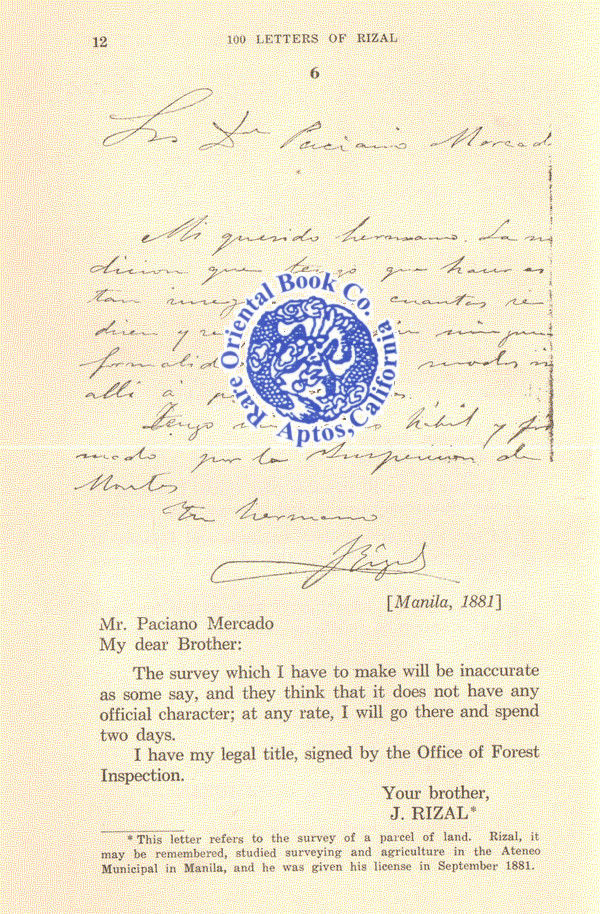 12
100 LETTERS OF RIZAL
6
Sr. Dn Paciano Mercad
Mi querido hermano. La m
dicion que tengo que hacer es
tan cuantos
ningun
allí á
Tengo hábil y fir
mado por la Inspeccion de
Montes
Tu hermano
JRizal
Rare Oriental Book Co.
Aptos, California
[Manila, 1881]
Mr. Paciano Mercado
My dear Brother:
The survey which I have to make will be inaccurate
as some say, and they think that it does not have any
official character; at any rate, I will go there and spend
two days.
I have my legal title, signed by the Office of Forest
Inspection.
Your brother,
J. RIZAL*
* This letter refers to the survey of a parcel of land. Rizal, it
may be remembered, studied surveying and agriculture in the Ateneo
Municipal in Manila, and he was given his license in September 1881.